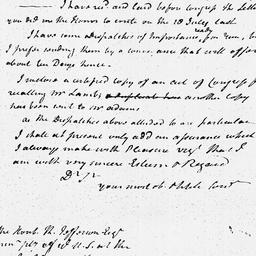 I have recd. and laid before Congress the Letter
you did me the Honor to write on the 18 July last.
I have some Dispatches of Importance ready for you, but
I prefer sending them by a conveyance that will offer
about ten Days hence.
I enclose a certified Copy of an act of Congress for
recalling Mr Lamb another Copy
has been sent to Mr Adams
as the Dispatches above alluded to are particular
I shall at present only add an assurance which
I always make with Pleasure vizt that I
am with very sincere Esteem & Regard
Dr Sr
your most ob. & hble Servt
The Honb. Th. Jefferson Esqr